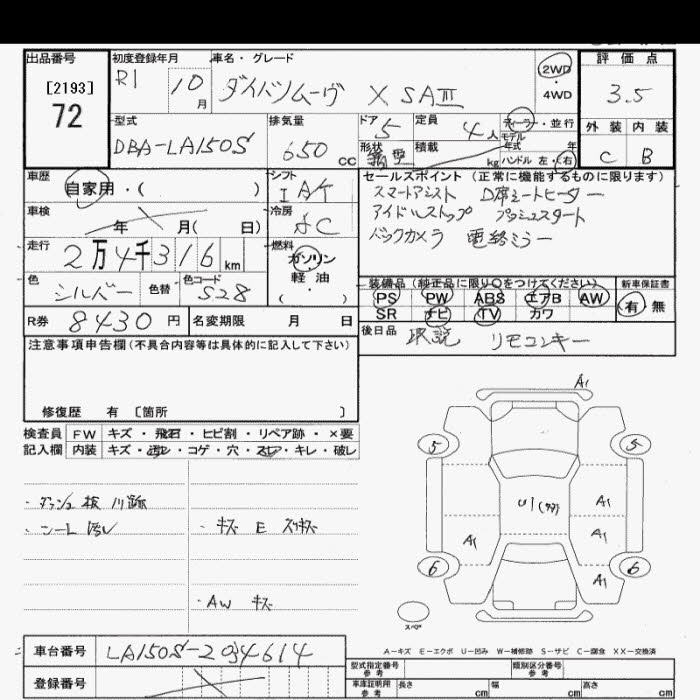 出品番号
[2193]
72
初度登録年月
R1 10 月
車名・グレード
ダイハツムーヴ X SAⅢ
2WD
・
4WD
評価点
3.5
外装 内装
C B
型式
DBA-LA150S
排気量
650 cc
ドア
5
定員
4 人
ディーラー・並行
モデル
年式 年
形状
積載
kg
ハンドル 左・右
車歴
自家用・( )
シフト
IAT
車検
年 月( 日)
冷房
AC
走行
2万4千316km
燃料
ガソリン
軽油
・( )
色
シルバー
色替
色コード
S28
R券 8430 円
名変期限 月 日
セールスポイント (正常に機能するものに限ります)
スマートアシスト D席シートヒーター
アイドルストップ プッシュスタート
バックカメラ 電格ミラー
装備品 (純正品に限り○をつけてください)
PS PW ABS エアB AW
SR ナビ TV カワ
新車保証書
有・無
後日品 取説 リモコンキー
注意事項申告欄(不具合内容等は具体的に記入して下さい)
修復歴 有 [箇所 ]
検査員 FW キズ・飛石・ヒビ割・リペア跡・×要
記入欄 内装 キズ・汚れ・コゲ・穴・スレ・キレ・破レ
・シート汚レ
・キズ E スリキズ
・AW キズ
A1
5
5
A1
A1
A1
A1
6
6
スペア
A－キズ E－エクボ U－凹み W－補修跡 S－サビ C－腐食 XX－交換済
車台番号 LA150S-2034614
登録番号
型式指定番号
参考
類別区分番号
参考
車庫証明用
参考
長さ cm 幅 cm 高さ cm